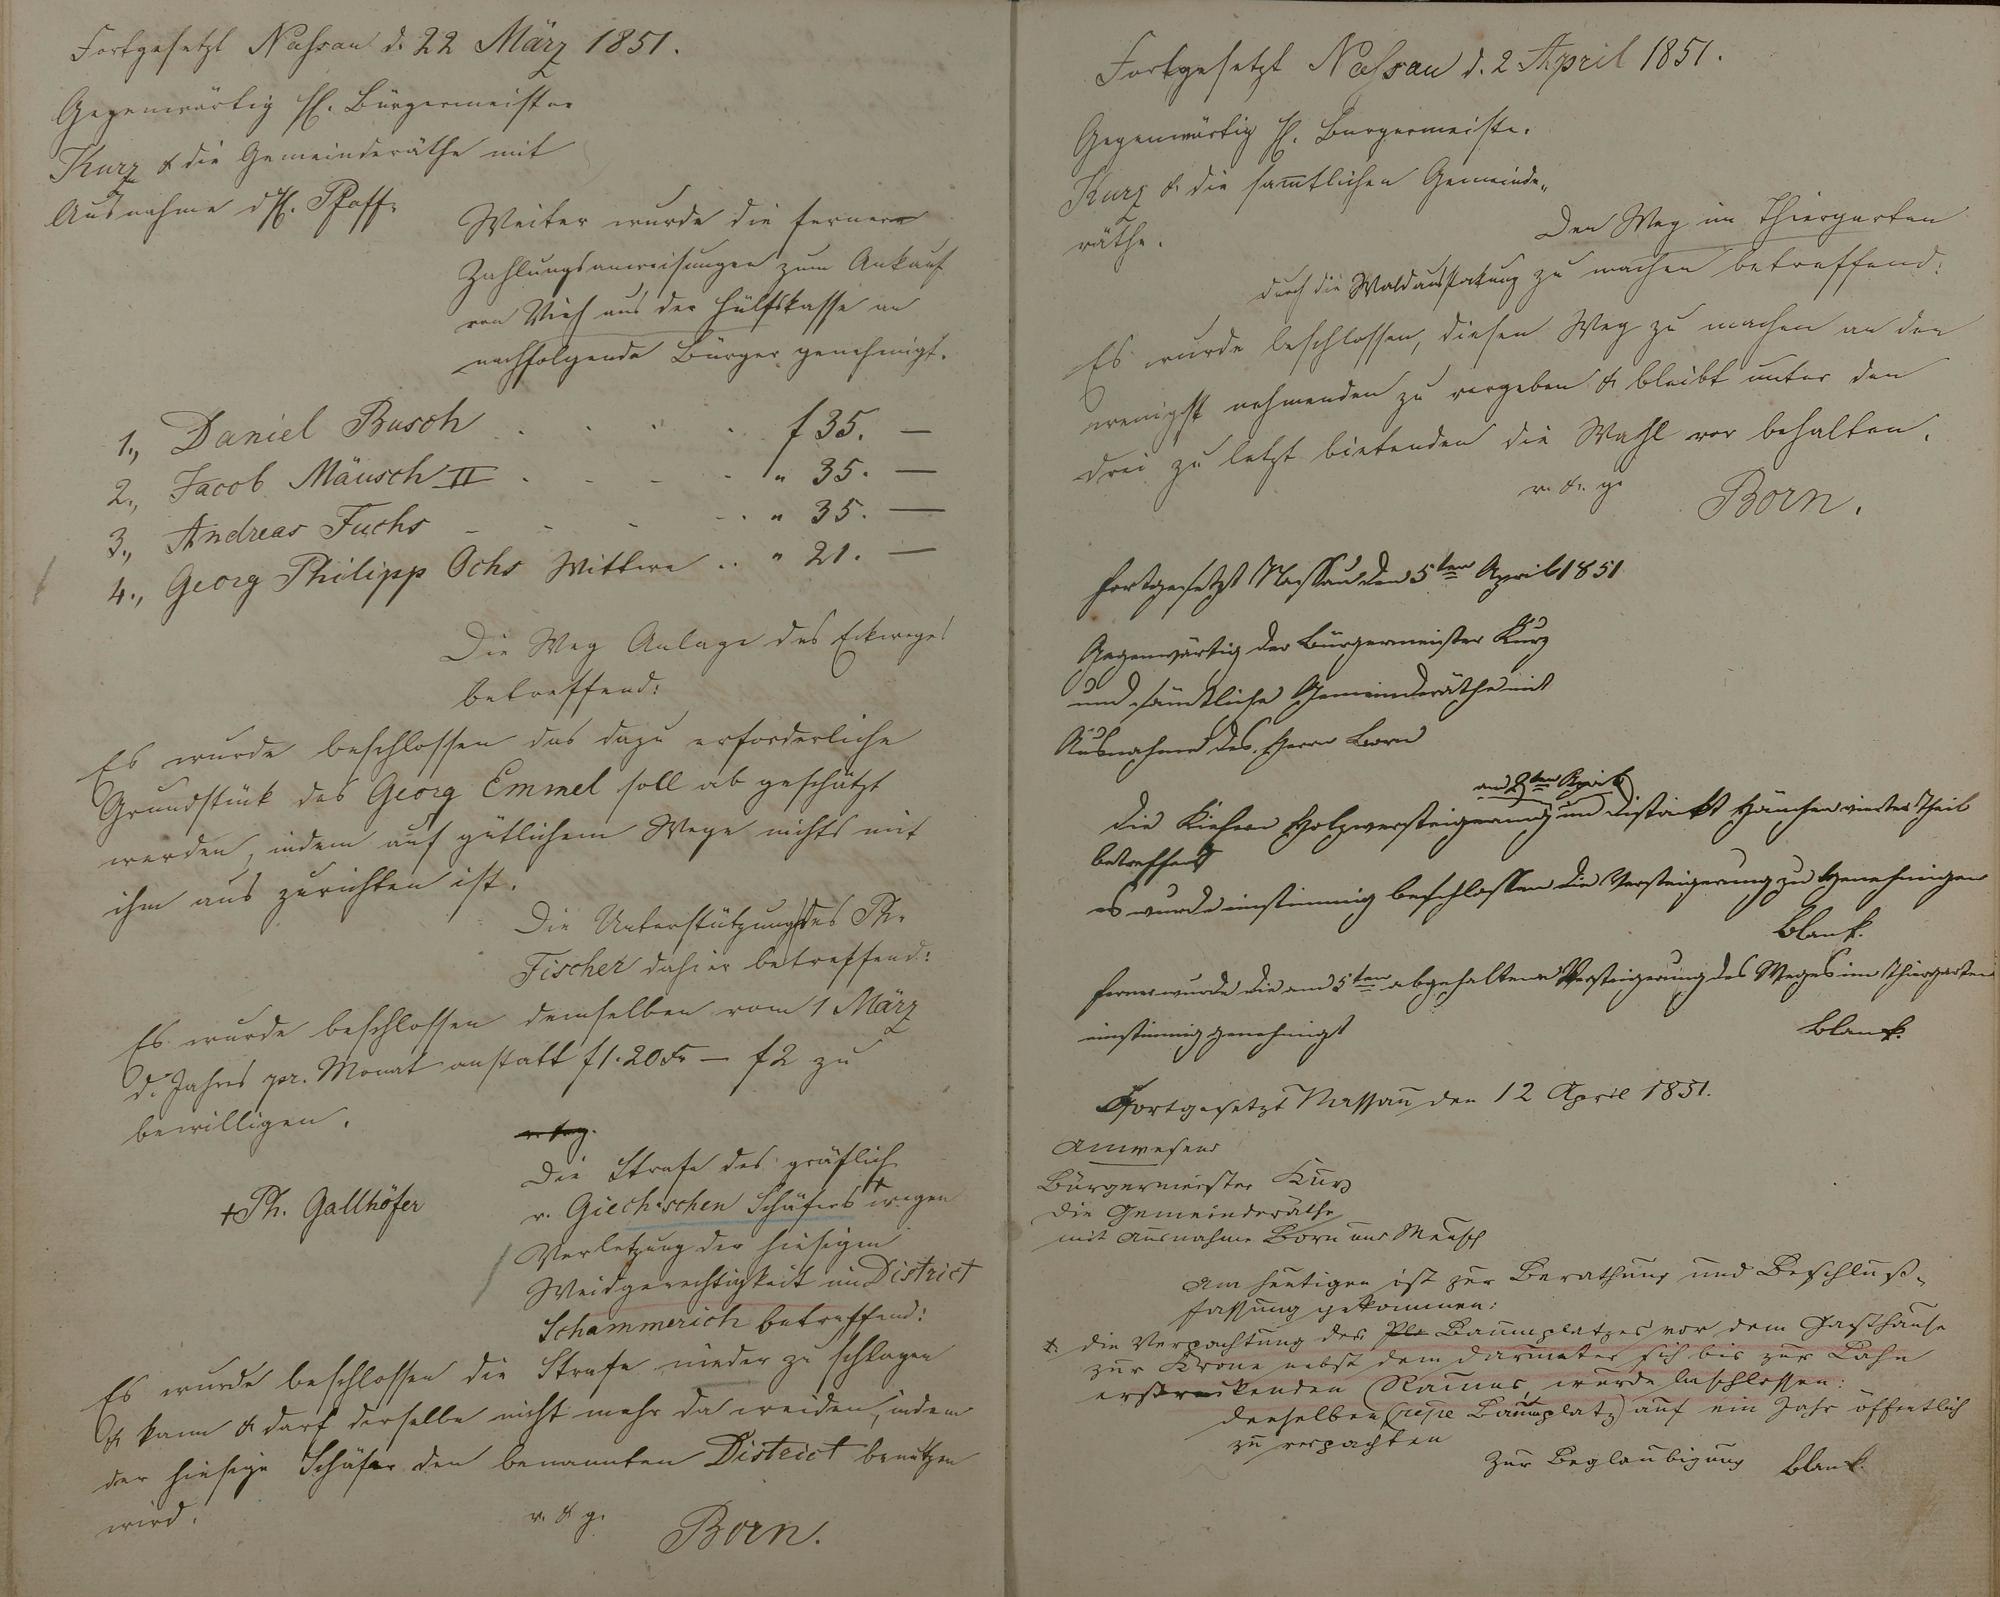 Fortgesetzt Nassau d. 22 März 1851.
Gegenwärtig H. Bürgermeister
Kurz & die Gemeinderäthe mit
Ausnahme d H. Pfaff.
Weiter wurde die fernere
Zahlungsanweisungen zum Ankauf
von Vieh aus der Hülfskasse an
nachfolgende Bürger genehmigt.
1., Daniel Busch . . . . f 35. —
2., Jacob Mäusch II . . . . " 35. —
3., Andreas Fuchs - - - - . " 35. —
4., Georg Philipp Ochs Wittwe .. " 21. —
Die Weg Anlage des Eckweges
betreffend:
Es wurde beschlossen das dazu erforderliche
Grundstück des Georg Emmel soll ab geschätzt
werden, indem auf gütlichem Wege nichts mit
ihm aus zurichten ist.
Die Unterstützung des Ph.
Fischer dahier betreffend:
Es wurde beschlossen demselben vom 1 März
d. Jahres pr. Monat anstatt f 1. 20 Kr — f 2 zu
bewilligen.
v. & g.
Die Strafe des gräflich
v. Giechischen Schäfers + wegen
+ Ph. Gallhöfer
Verletzung der hiesigen
Weidgerechtigkeit im District
Schammerich betreffend:
Es wurde beschlossen die Strafe nieder zu schlagen
& kann & darf derselbe nicht mehr da weiden, indem
der hiesige Schäfer den benannten District benutzen
wird.
v. & g.
Born.
Fortgesetzt Nassau d. 2 April 1851.
Gegenwärtig H. Burgermeister
Kurz & die sam̅tlichen Gemeinde„
räthe.
Den Weg im Thiergarten
durch die Waldausstockung zu machen betreffend:
Es wurde beschlossen, diesen Weg zu machen an den
wenigst nehmenden zu vergeben & bleibt unter den
drei zu letzt bietenden die Wahl vor behalten.
v. & g.
Born.
Fortgesetzt Nassau den 5ten April 1851
Gegenwärtig der Bürgermeister Kurz
und sämtliche Gemeinderäthe mit
Ausnahme des Herrn Born
am 2ten April
Die Kiefern Holzversteigerung im Distrikt Hänchen vierter Theil
betreffend
es wurde einstimmig beschlossen die Versteigerung zu genehmigen
Blank.
ferner wurde die am 5ten abgehaltene Versteigerung des Weges im Thiergarten
einstimig genehmigt
Blank.
Fortgesetzt Nassau den 12 April 1851.
Anwesend
Bürgermeister Kurz
die Gemeinderäthe
mit Ausnahme Born und Meusch
Am heutigen ist zur Berathung und Beschluß„
fassung gekommen:
+ die Verpachtung des Pla Baumplatzes vor dem Gasthause
zur Krone nebst dem darunter sich bis zur Lahn
erstreckenden Raumes, wurde beschlossen:
denselben (resp Baumplatz) auf ein Jahr öffentlich
zu verpachten
Zur Beglaubigung Blank.